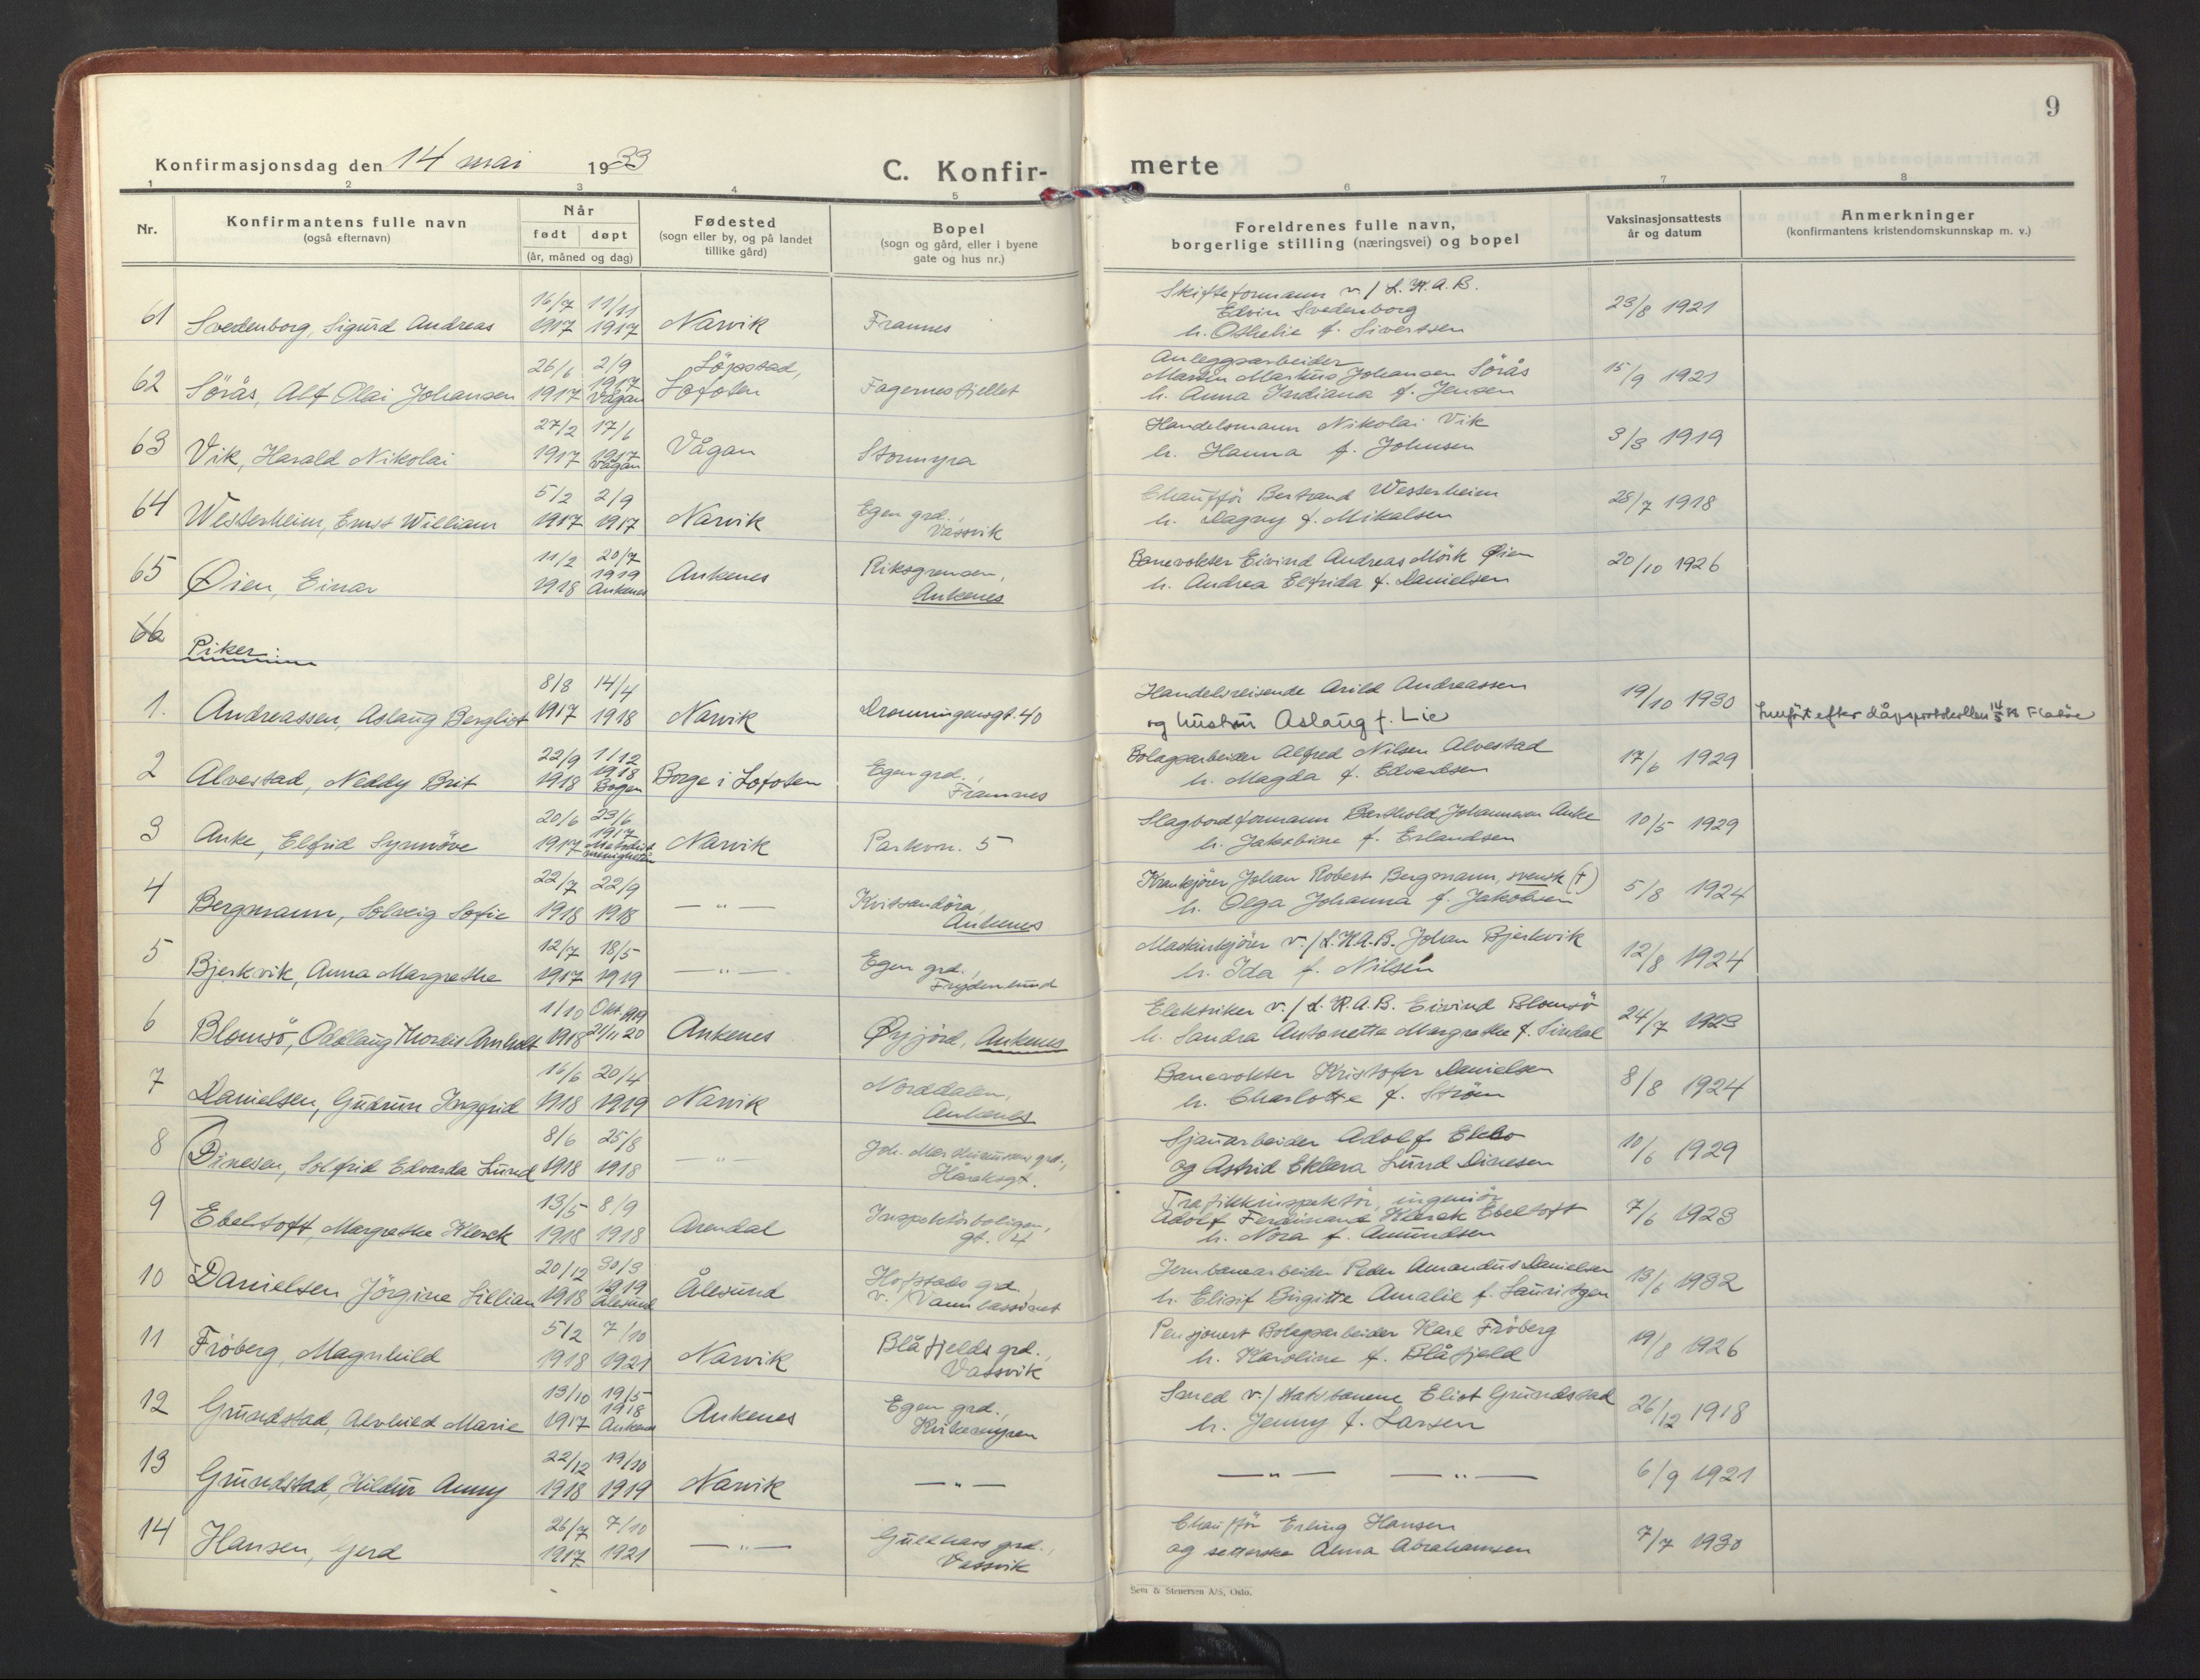 9
Konfirmasjonsdag den 14 mai 1933
C. Konfir-
merte
1 2 3 4 5 6 7 8
Nr.
Konfirmantens fulle navn
(også efternavn)
Når
født døpt
(år, måned og dag)
Fødested
(sogn eller by, og på landet
tillike gård)
Bopel
(sogn og gård, eller i byene
gate og hus nr.)
Foreldrenes fulle navn,
borgerlige stilling (næringsvei) og bopel
Vaksinasjonsattests
år og datum
Anmerkninger
(konfirmantens kristendomskunnskap m. v.)
61 Svedenborg, Sigurd Andreas 16/7 1917 11/11 1917 Narvik Framnes
Skifteformann v./L.K.A.B.
Edvin Svedenborg
h. Othelie f. Sivertsen
23/8 1921
62 Sörås, Alf Olai Johansen 26/6 1917 2/9 1917 Vågan Löpstad, Lofoten Fagernesfjellet
Anleggsarbeider
Martin Markus Johansen Sörås
h. Anna Indiana f. Jensen
15/9 1921
63 Vik, Harald Nikolai 27/2 1917 17/6 1917 Vågan Vågan Stormyra
Handelsmann Nikolai Vik
h. Hanna f. Johnsen
3/3 1919
64 Westerheim, Ernst William 5/2 1917 2/9 1917 Narvik Egen grd., Vassvik
Chaufför Bertrand Westerheim
h. Dagny f. Mikalsen
28/7 1918
65 Øien, Einar 11/2 1918 20/7 1919 Ankenes Ankenes Riksgrensen, Ankenes
Banevokter Eivind Andreas Mörk Øien
h. Andrea Elfrida f. Danielsen
20/10 1926
66
Piker:
1. Andreassen, Aslaug Bergliot 8/8 1917 14/4 1918 Narvik Dronningensgt. 40
Handelsreisende Arild Andreassen
og hustru Aslaug f. Lie
19/10 1930
Innført efter dåpsprotokollen 14/5
2 Alvestad, Neddy Brit 22/9 1918 1/12 1918 Bogen Borge i Lofoten Egen grd., Framnes
Bolagsarbeider Alfred Nilsen Alvestad
h. Magda f. Edvardsen
17/6 1929
3 Anke, Elfrid Synnöve 20/6 1917 23/6 1917 Metodistmenigheten Narvik Parkvn. 5
Slagbordformann Barthold Johannesen Anke
h. Jakobine f. Erlandsen
10/5 1929
4 Bergmann, Solveig Sofie 22/7 1918 22/9 1918 — " — Kvitsandöra, Ankenes
Krankjörer Johan Robert Bergmann, svensk (†)
h. Olga Johanna f. Jakobsen
5/8 1924
5 Bjerkvik, Anna Margrethe 12/7 1917 18/5 1919 — " — Egen grd., Frydenlund
Maskinkjörer v./L.K.A.B. Johan Bjerkvik
h. Ida f. Nilsen
12/8 1924
6 Blomsö, Oddlaug Thordis Arnholdt 1/10 1918 Okt. 1919 21/11 20 Ankenes Øyjord, Ankenes
Elektriker v./L.K.A.B. Eivind Blomsö
h. Sandra Antonette Margrethe f. Sindal
24/7 1923
7 Danielsen, Gudrun Ingfrid 16/6 1918 20/4 1919 Narvik Norddalen, Ankenes
Banevokter Kristofer Danielsen
h. Charlotte f. Ström
8/8 1924
8 Dinesen, Solfrid Edvarda Lund 8/6 1918 25/8 1918 — " — Joh. Markussens grd., Håreksgt.
Sjauarbeider Adolf Ekbo
og Astrid Eklara Lund Dinesen
10/6 1929
9 Ebeltoft, Margrethe Klerck 13/5 1918 8/9 1918 Arendal Inspektörboligen, gt. 4
Trafikkinspektör, ingeniör
Adolf Ferdinand Klerck Ebeltoft
h. Nora f. Amundsen
7/6 1923
10 Danielsen Jörgine Lillian 20/12 1918 30/3 1919 Ålesund Ålesund Hofstads grd. v./Vannbassinet
Jernbanearbeider Peder Amandus Danielsen
h. Elisif Birgitte Amalie f. Lauritzen
13/6 1932
11 Fröberg, Magnhild 5/2 1918 7/10 1921 Narvik Blåfjelds grd., Vassvik
Pensjonert Bolagsarbeider Karl Fröberg
h. Karoline f. Blåfjeld
19/8 1926
12 Grundstad, Alvhild Marie 13/10 1917 19/5 1918 Ankenes Ankenes Egen grd., Kvikenmyren
Smed v./Statsbanene Eliot Grundstad
h. Jenny f. Larsen
26/12 1918
13 Grundstad, Hildur Anny 22/12 1918 19/10 1919 Narvik — " —
— " — — " —
6/9 1921
14 Hansen, Gerd 26/7 1917 7/10 1921 — " — Gullhavs grd., Vassvik
Chaufför Erling Hansen
og setterske Alma Abrahamsen
7/7 1930
Sem & Stenersen A/S, Oslo.